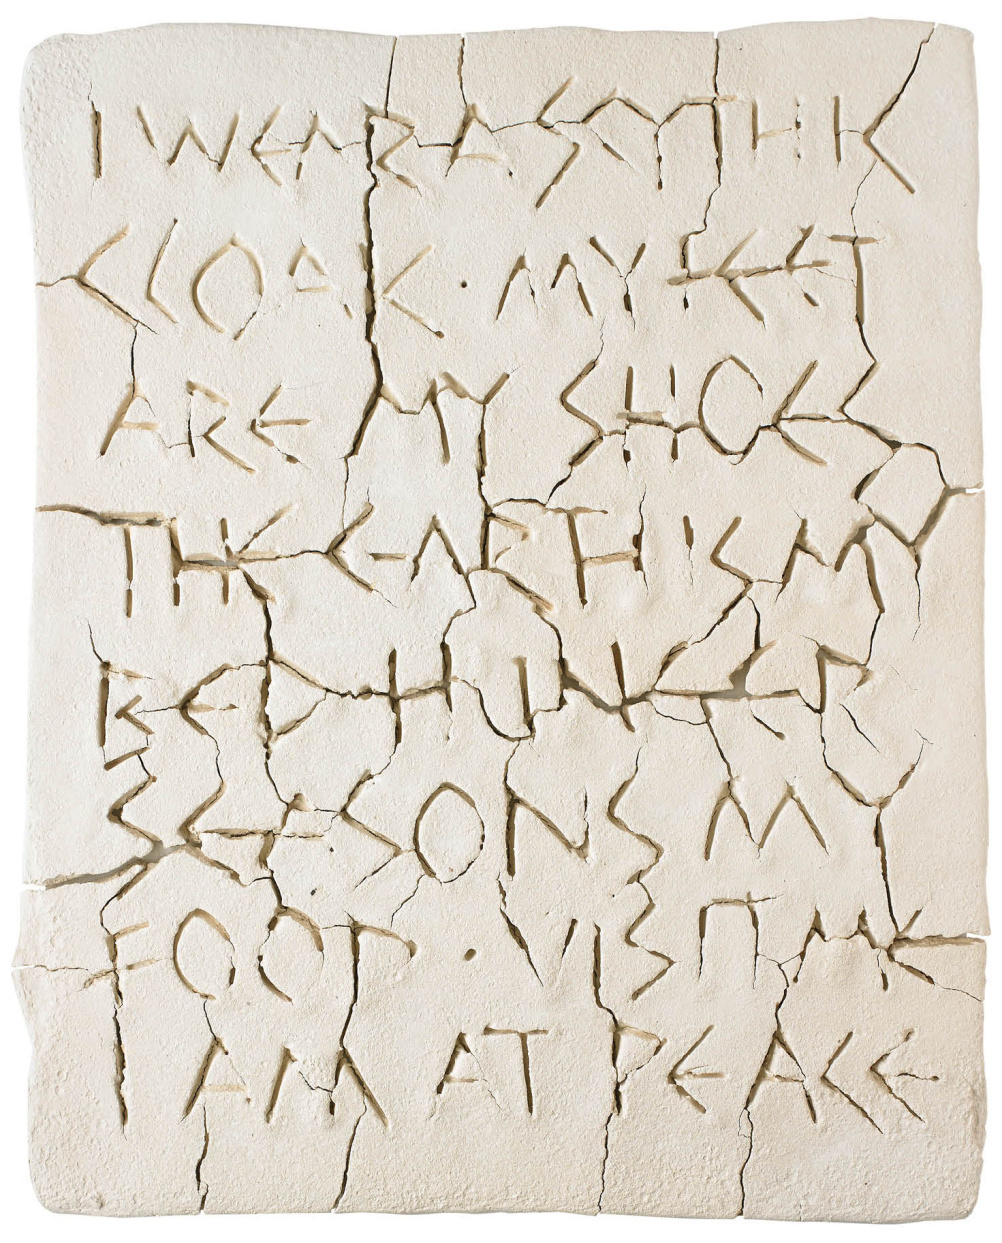 I WEAR A SCYTHIK
CLOAK · MY FEET
ARE MY SHOES
THE EARTH IS MY
BED HUNGER
SEASONS MY
FOOD · VISIT ME
I AM AT PEACE